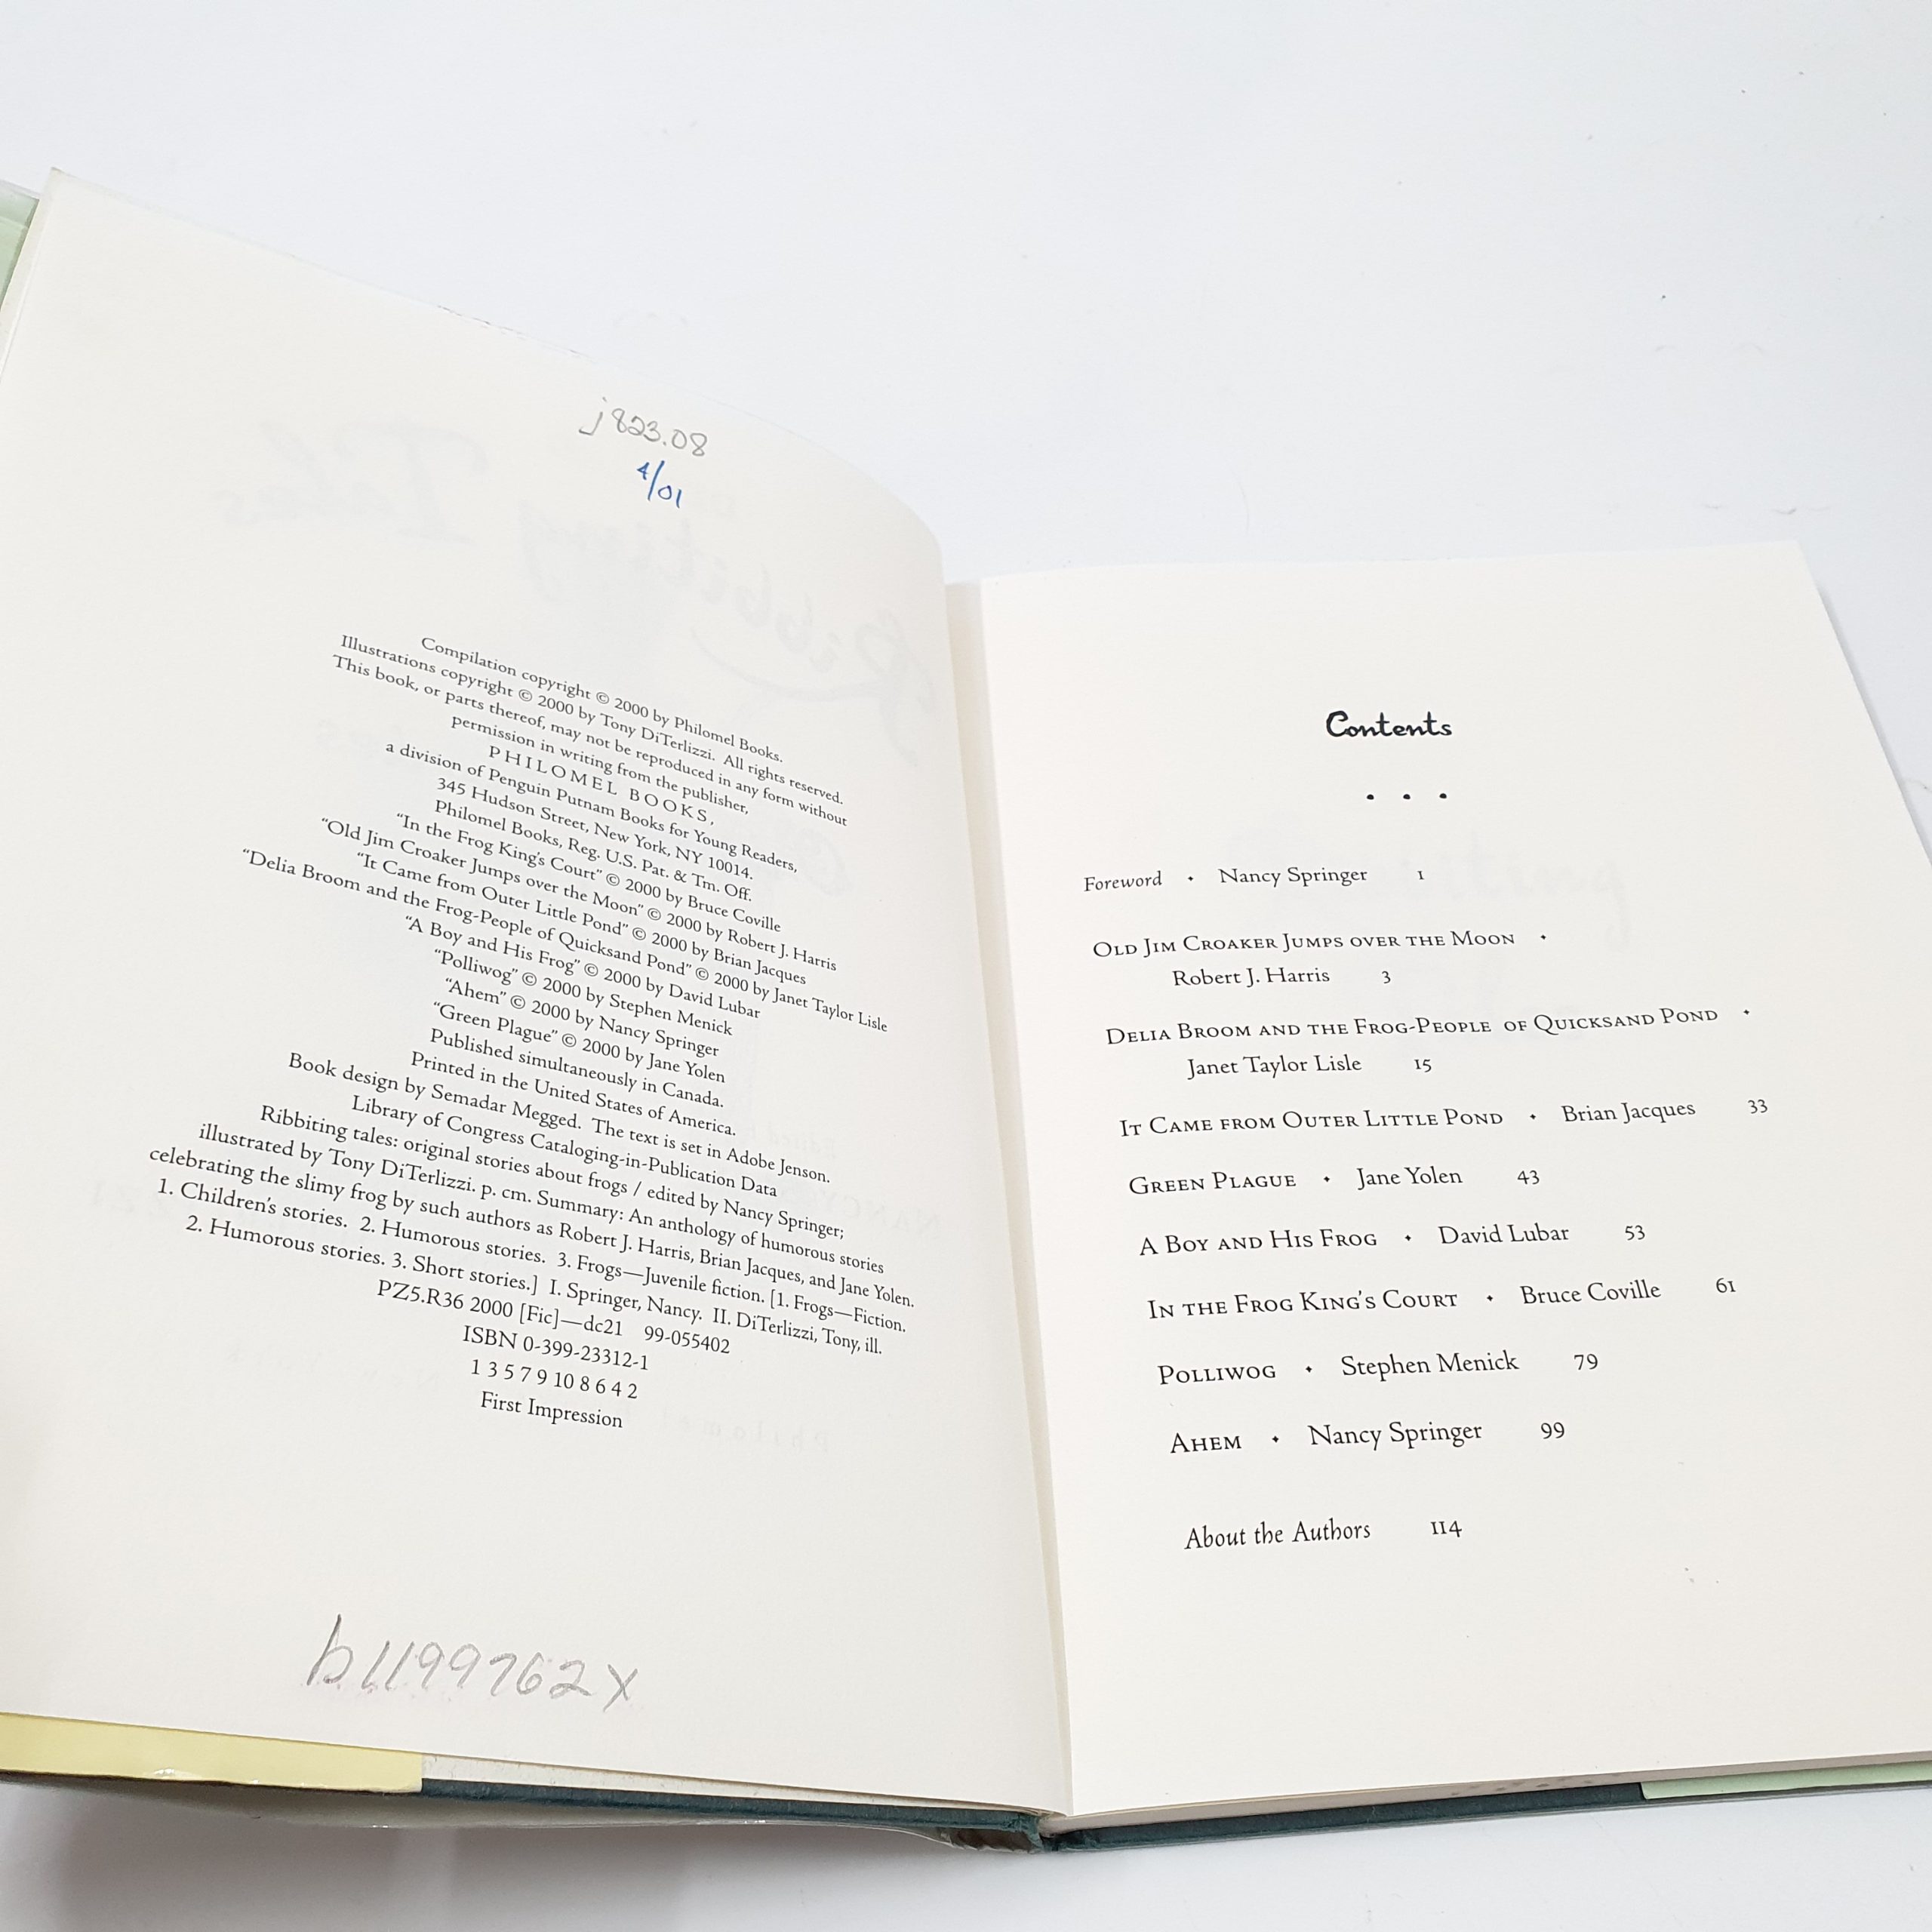 j823.08
4/01
Compilation copyright © 2000 by Philomel Books.
Illustrations copyright © 2000 by Tony DiTerlizzi. All rights reserved.
This book, or parts thereof, may not be reproduced in any form without
permission in writing from the publisher,
PHILOMEL BOOKS,
a division of Penguin Putnam Books for Young Readers,
345 Hudson Street, New York, NY 10014.
Philomel Books, Reg. U.S. Pat. & Tm. Off.
“In the Frog King's Court” © 2000 by Bruce Coville
“Old Jim Croaker Jumps over the Moon” © 2000 by Robert J. Harris
“It Came from Outer Little Pond” © 2000 by Brian Jacques
“Delia Broom and the Frog-People of Quicksand Pond” © 2000 by Janet Taylor Lisle
“A Boy and His Frog” © 2000 by David Lubar
“Polliwog” © 2000 by Stephen Menick
“Ahem” © 2000 by Nancy Springer
“Green Plague” © 2000 by Jane Yolen
Published simultaneously in Canada.
Printed in the United States of America.
Book design by Semadar Megged. The text is set in Adobe Jenson.
Library of Congress Cataloging-in-Publication Data
Ribbiting tales: original stories about frogs / edited by Nancy Springer;
illustrated by Tony DiTerlizzi. p. cm. Summary: An anthology of humorous stories
celebrating the slimy frog by such authors as Robert J. Harris, Brian Jacques, and Jane Yolen.
1. Children's stories. 2. Humorous stories. 3. Frogs—Juvenile fiction. [1. Frogs—Fiction.
2. Humorous stories. 3. Short stories.] I. Springer, Nancy. II. DiTerlizzi, Tony, ill.
PZ5.R36 2000 [Fic]—dc21 99-055402
ISBN 0-399-23312-1
1 3 5 7 9 10 8 6 4 2
First Impression
b1199762x
Contents
• • •
Foreword • Nancy Springer 1
OLD JIM CROAKER JUMPS OVER THE MOON •
Robert J. Harris 3
DELIA BROOM AND THE FROG-PEOPLE OF QUICKSAND POND •
Janet Taylor Lisle 15
IT CAME FROM OUTER LITTLE POND • Brian Jacques 33
GREEN PLAGUE • Jane Yolen 43
A BOY AND HIS FROG • David Lubar 53
IN THE FROG KING'S COURT • Bruce Coville 61
POLLIWOG • Stephen Menick 79
AHEM • Nancy Springer 99
About the Authors 114